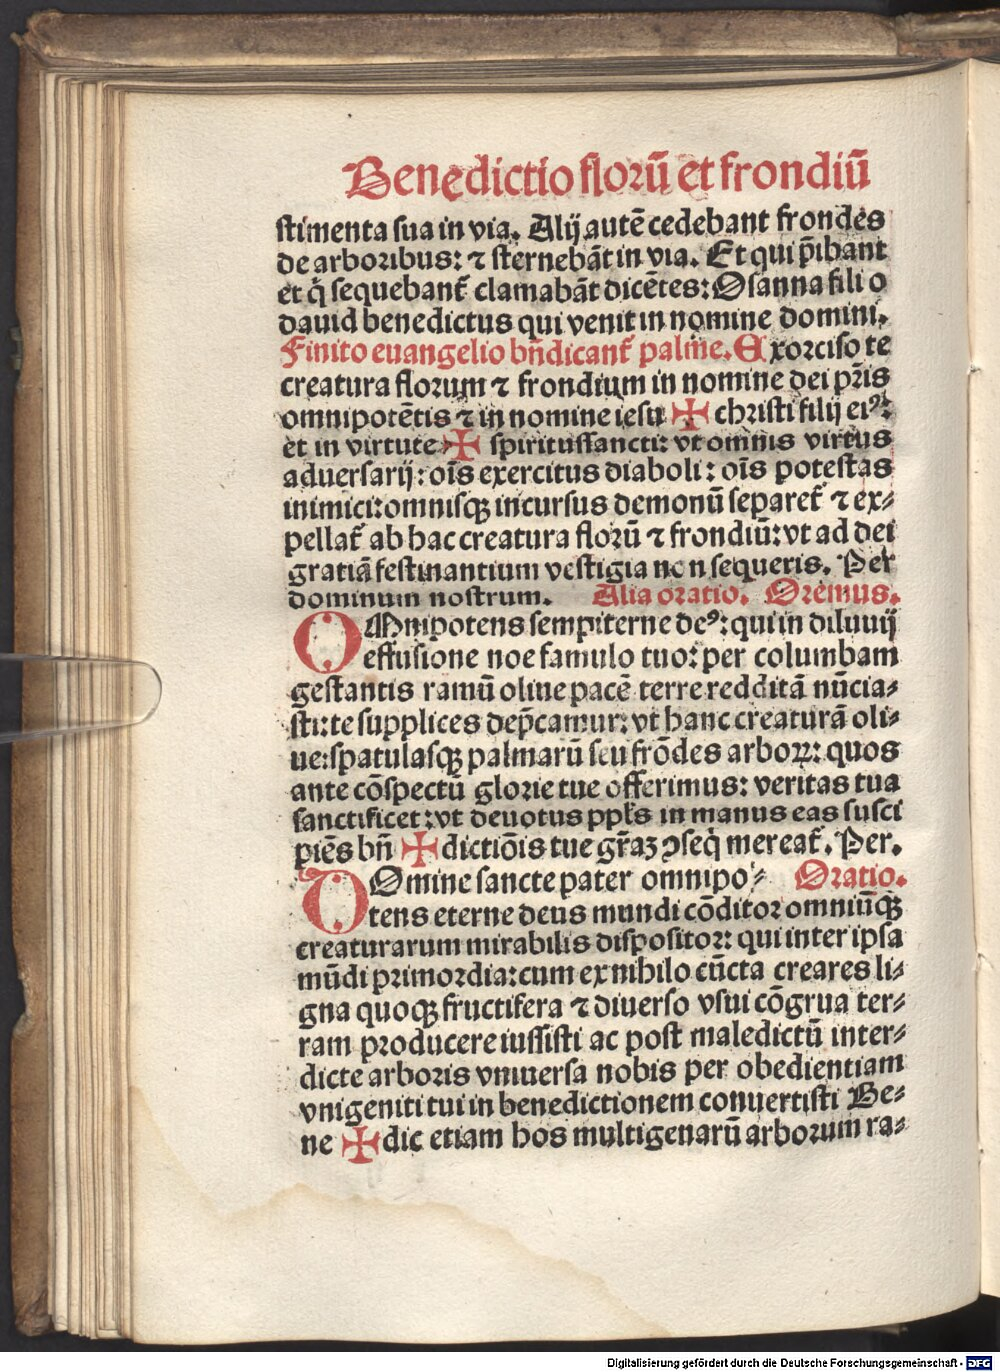 Benedictio florū et frondiū
stimenta sua in via. Alij autē cedebant frondes
de arboribus: ⁊ sternebāt in via. Et qui p̄ibant
et q̄ sequebant᷑ clamabāt dicētes: Osanna fili o
dauid benedictus qui venit in nomine domini.
Finito euangelio bn̄dicant᷑ palme. Exorciso te
creatura florum ⁊ frondium in nomine dei pr̄is
omnipotētis ⁊ in nomine iesu ✠ christi filij eiꝰ:
et in virtute ✠ spiritussancti: vt omnis virtus
aduersarij: oīs exercitus diaboli: oīs potestas
inimici: omnisqꝫ incursus demonū separet᷑ ⁊ ex⸗
pellat᷑ ab hac creatura florū ⁊ frondiū: vt ad dei
gratiā festinantium vestigia non sequeris. Per
dominum nostrum. Alia oratio. Oremus.
OMnipotens sempiterne deꝰ: qui in diluuij
effusione noe famulo tuo: per columbam
gestantis ramū oliue pacē terre redditā nūcia⸗
sti: te supplices dep̄camur: vt hanc creaturā oli⸗
ue: spatulasqꝫ palmarū seu frōdes arboꝝ: quos
ante cōspectū glorie tue offerimus: veritas tua
sanctificet: vt deuotus ppl̄s in manus eas susci
piēs bn̄ ✠ dictiōis tue gr̄aꝫ ꝯseq̄ mereat᷑. Per.
DOmine sancte pater omnipo⸗ Oratio.
tens eterne deus mundi cōditor omniūqꝫ
creaturarum mirabilis dispositor: qui inter ipsa
mūdi primordia: cum ex nihilo cūcta creares li⸗
gna quoqꝫ fructifera ⁊ diuerso vsui cōgrua ter⸗
ram producere iussisti ac post maledictū inter⸗
dicte arboris vniuersa nobis per obedientiam
vnigeniti tui in benedictionem conuertisti Be⸗
ne ✠ dic etiam hos multigenarū arborum ra⸗
Digitalisierung gefördert durch die Deutsche Forschungsgemeinschaft - DFG